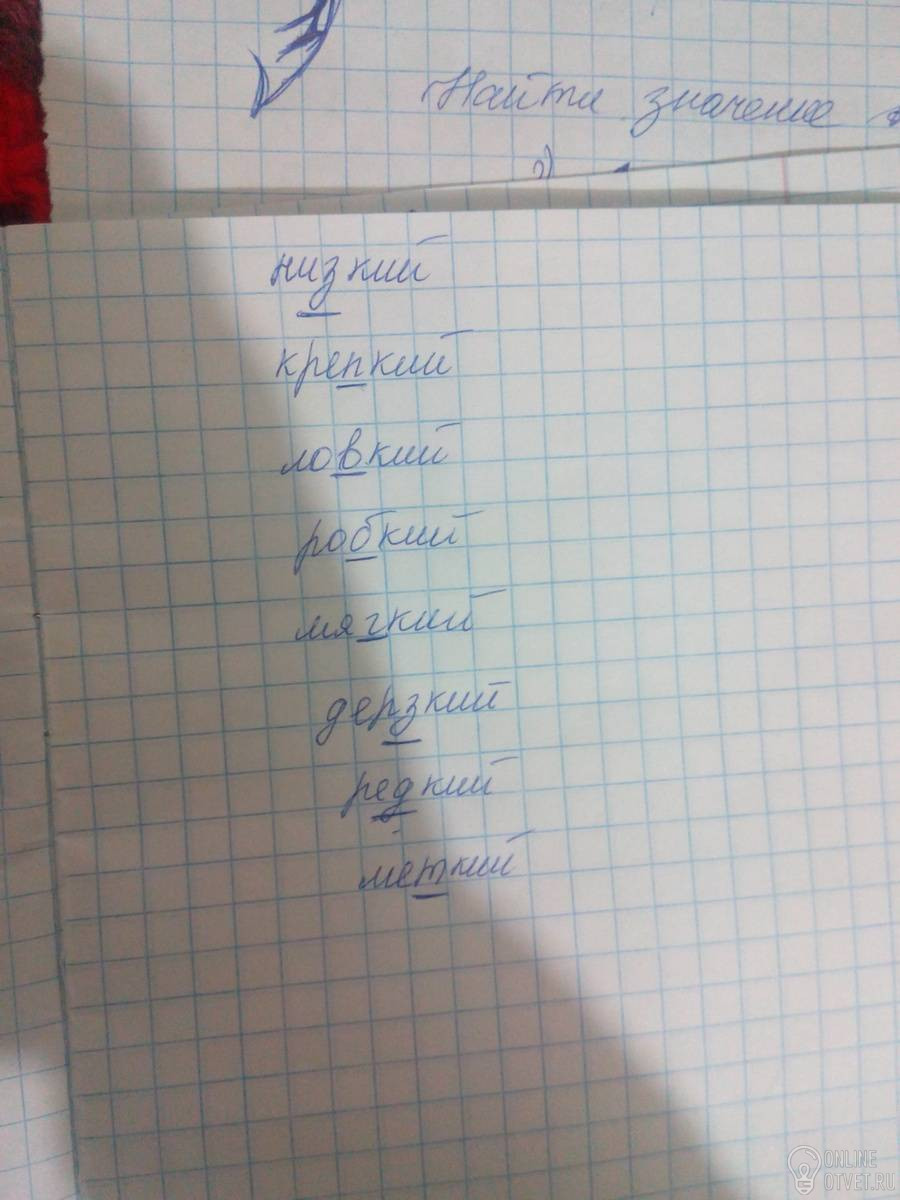 Найти значение
2)
низкий
крепкий
ловкий
робкий
мягкий
дерзкий
редкий
меткий
ONLINE
OTVET.RU